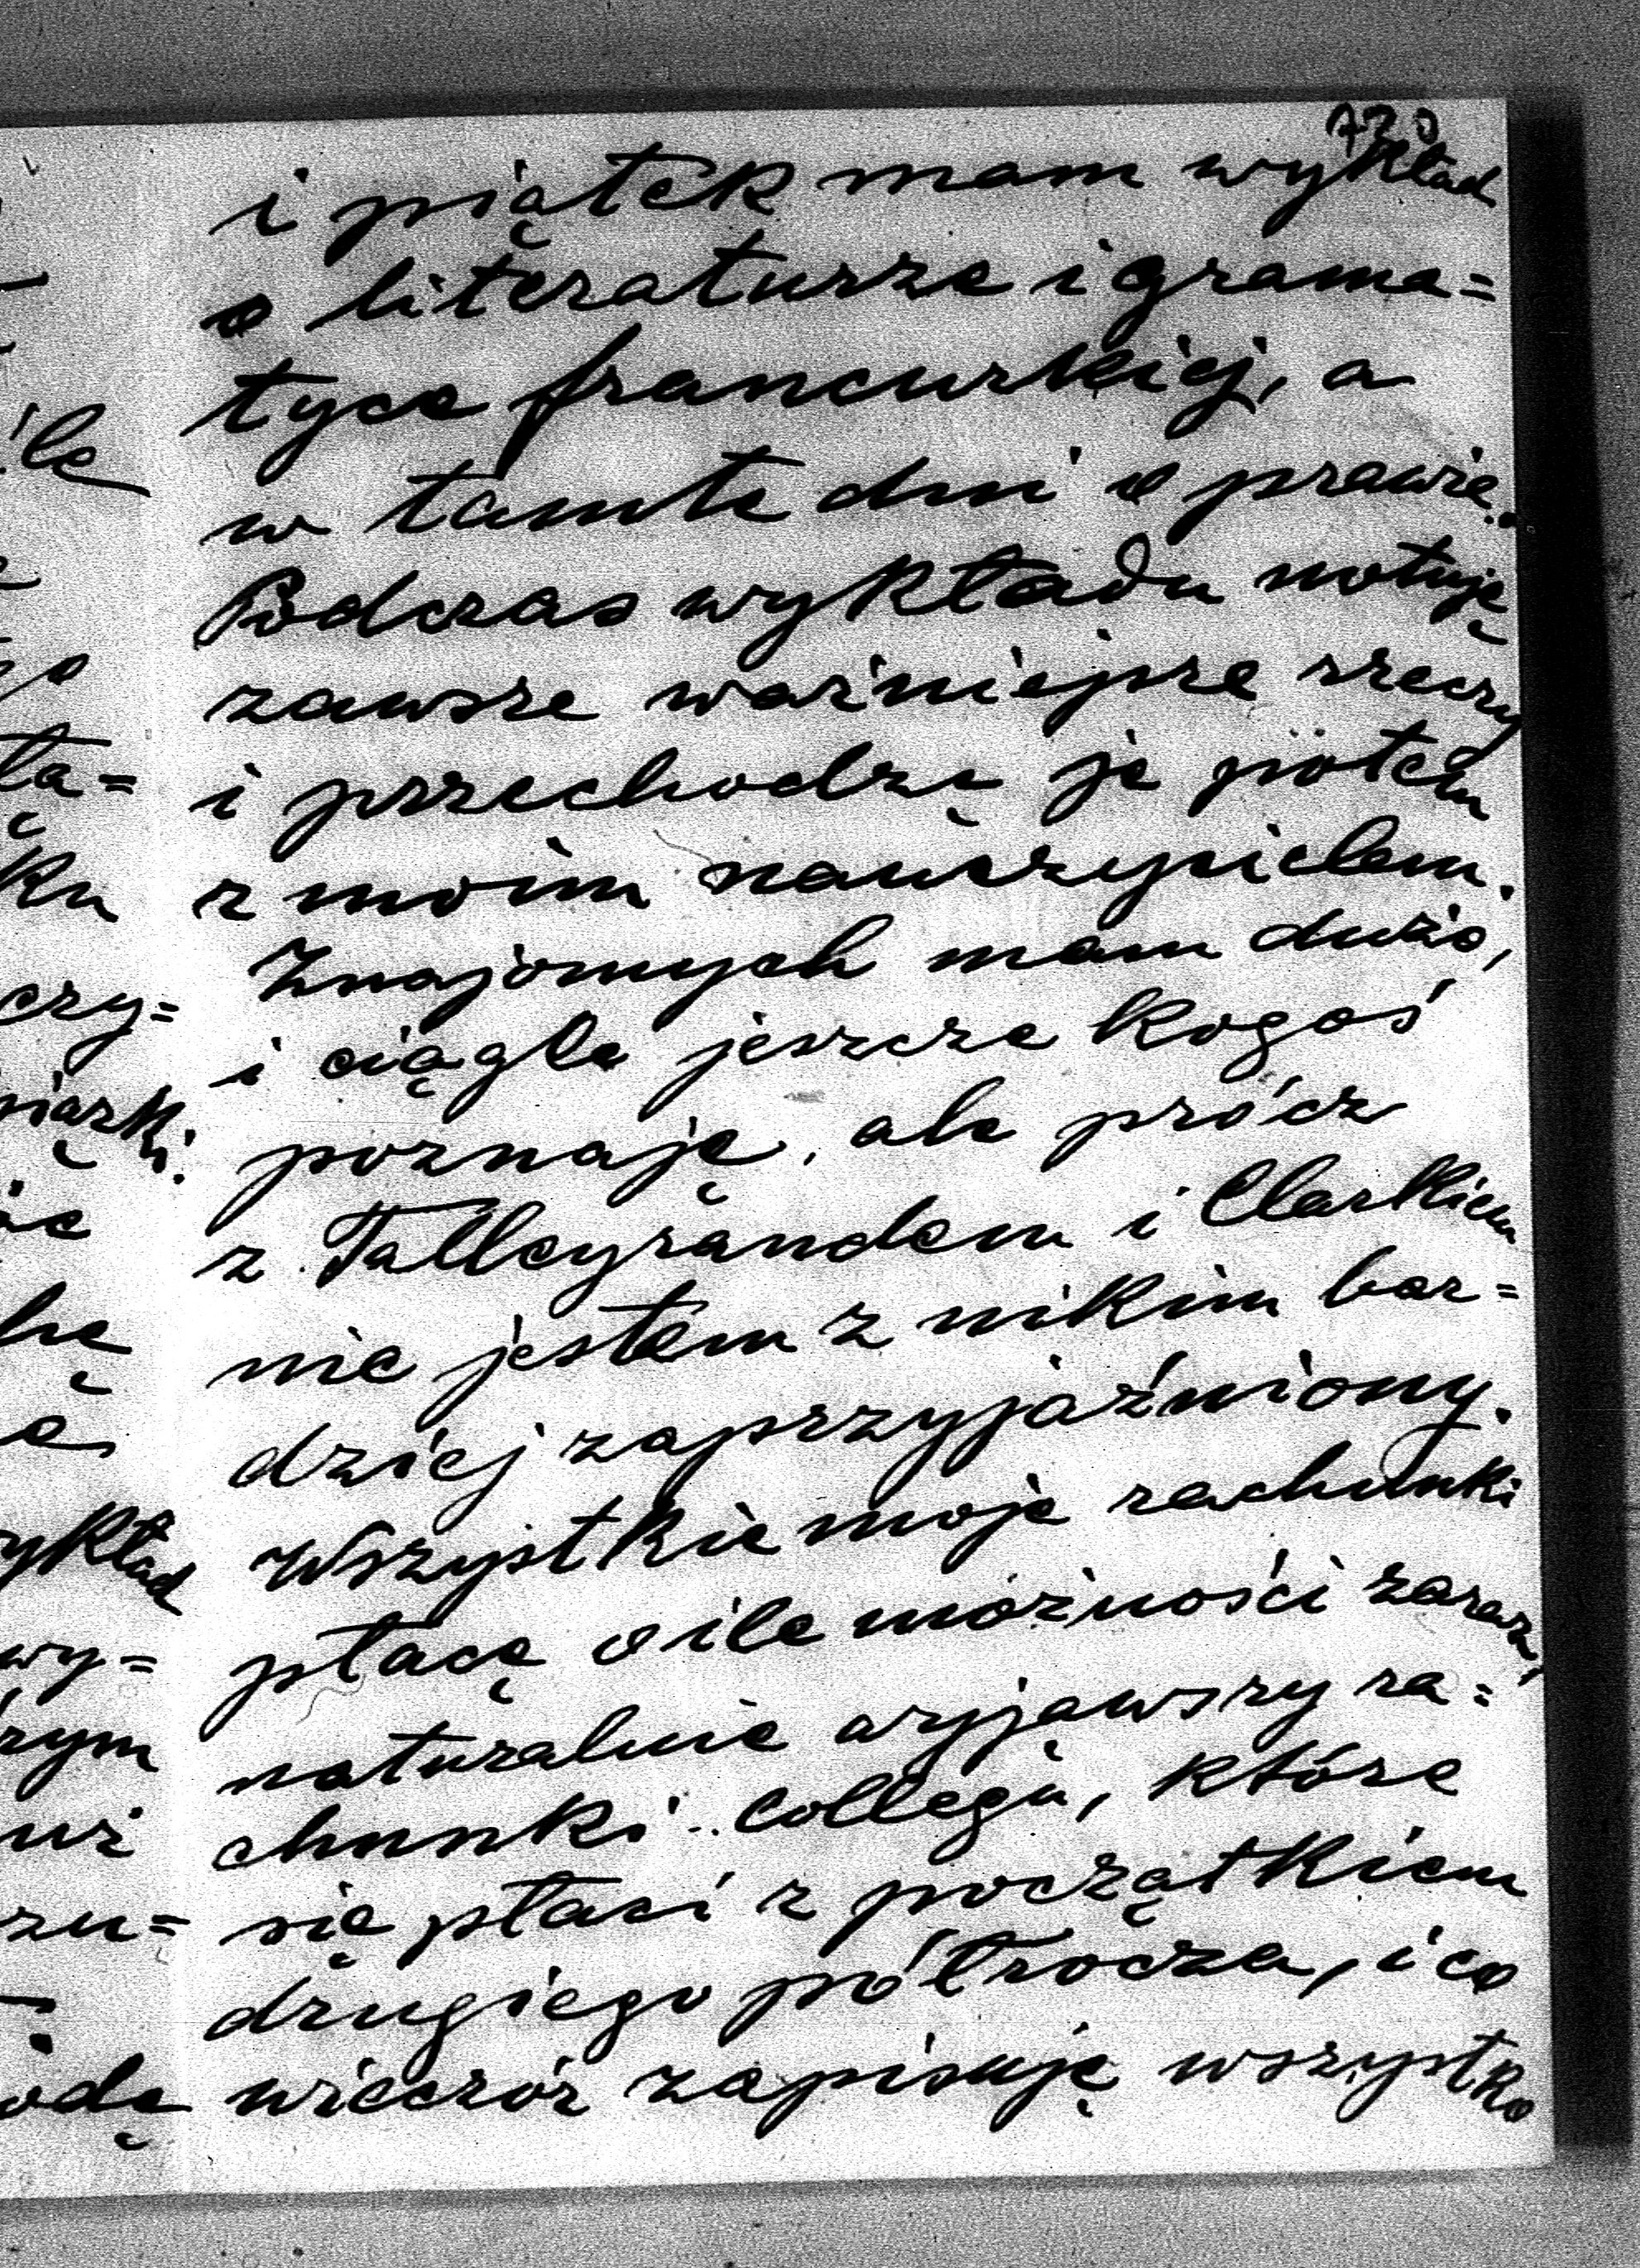 i piątek mam wykład
o literaturze i grama=
tyce francuzkiej, a
w tamte dni o prawie.
Podczas wykładu notuję
zawsze ważniejsze rzeczy
i przechodzę je potem
z moim nauczycielem.
Znajomych mam dużo,
i ciągle jeszcze kogoś
poznaję, ale prócz
z Talleyrandem i Clarkiem
nie jestem z nikim bar=
dziej zaprzyjaźniony.
Wszystkie moje rachunki
płacę o ile możności zaraz,
naturalnie wyjąwszy ra=
chunki Collegu, które
się płaci z początkiem
drugiego półrocza, i co
wieczór zapisuję wszystko